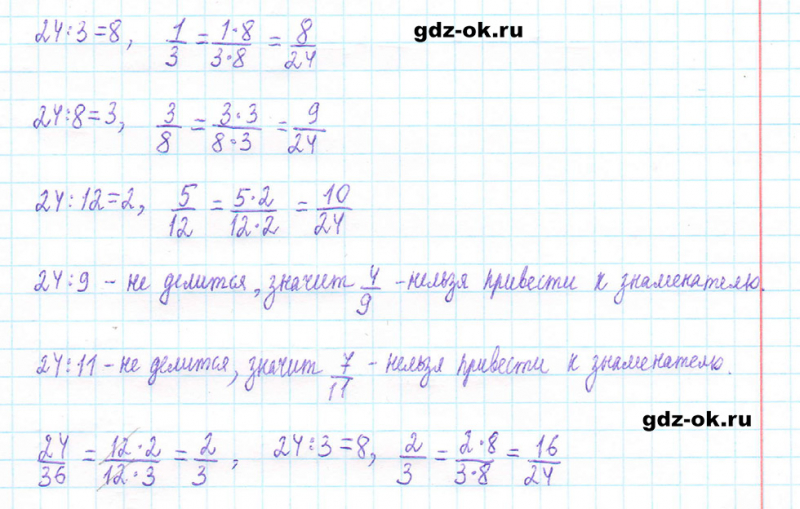 24:3=8, 1/3 = 1·8/3·8 = 8/24
gdz-ok.ru
24:8=3, 3/8 = 3·3/8·3 = 9/24
24:12=2, 5/12 = 5·2/12·2 = 10/24
24:9 - не делится, значит 4/9 - нельзя привести к знаменателю.
24:11 - не делится, значит 7/11 - нельзя привести к знаменателю.
gdz-ok.ru
24/36 = 12·2/12·3 = 2/3; 24:3=8, 2/3 = 2·8/3·8 = 16/24